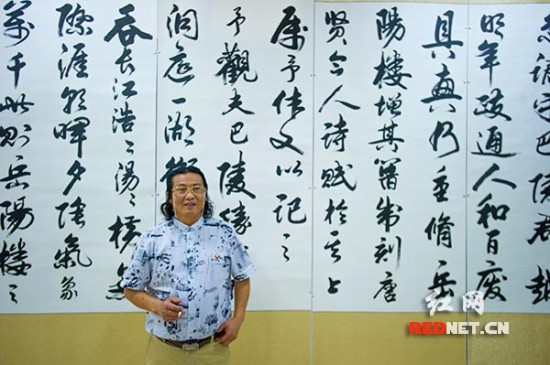 謫守巴陵郡越
明年政通人和百廢
具興乃重脩岳
陽樓增其舊制刻唐
賢今人詩賦於其上
屬予作文以記之
予觀夫巴陵勝
洞庭一湖銜
吞長江浩〻湯〻橫無
際涯朝暉夕陰氣象
萬千此則岳陽樓之
红网
REDNET.CN